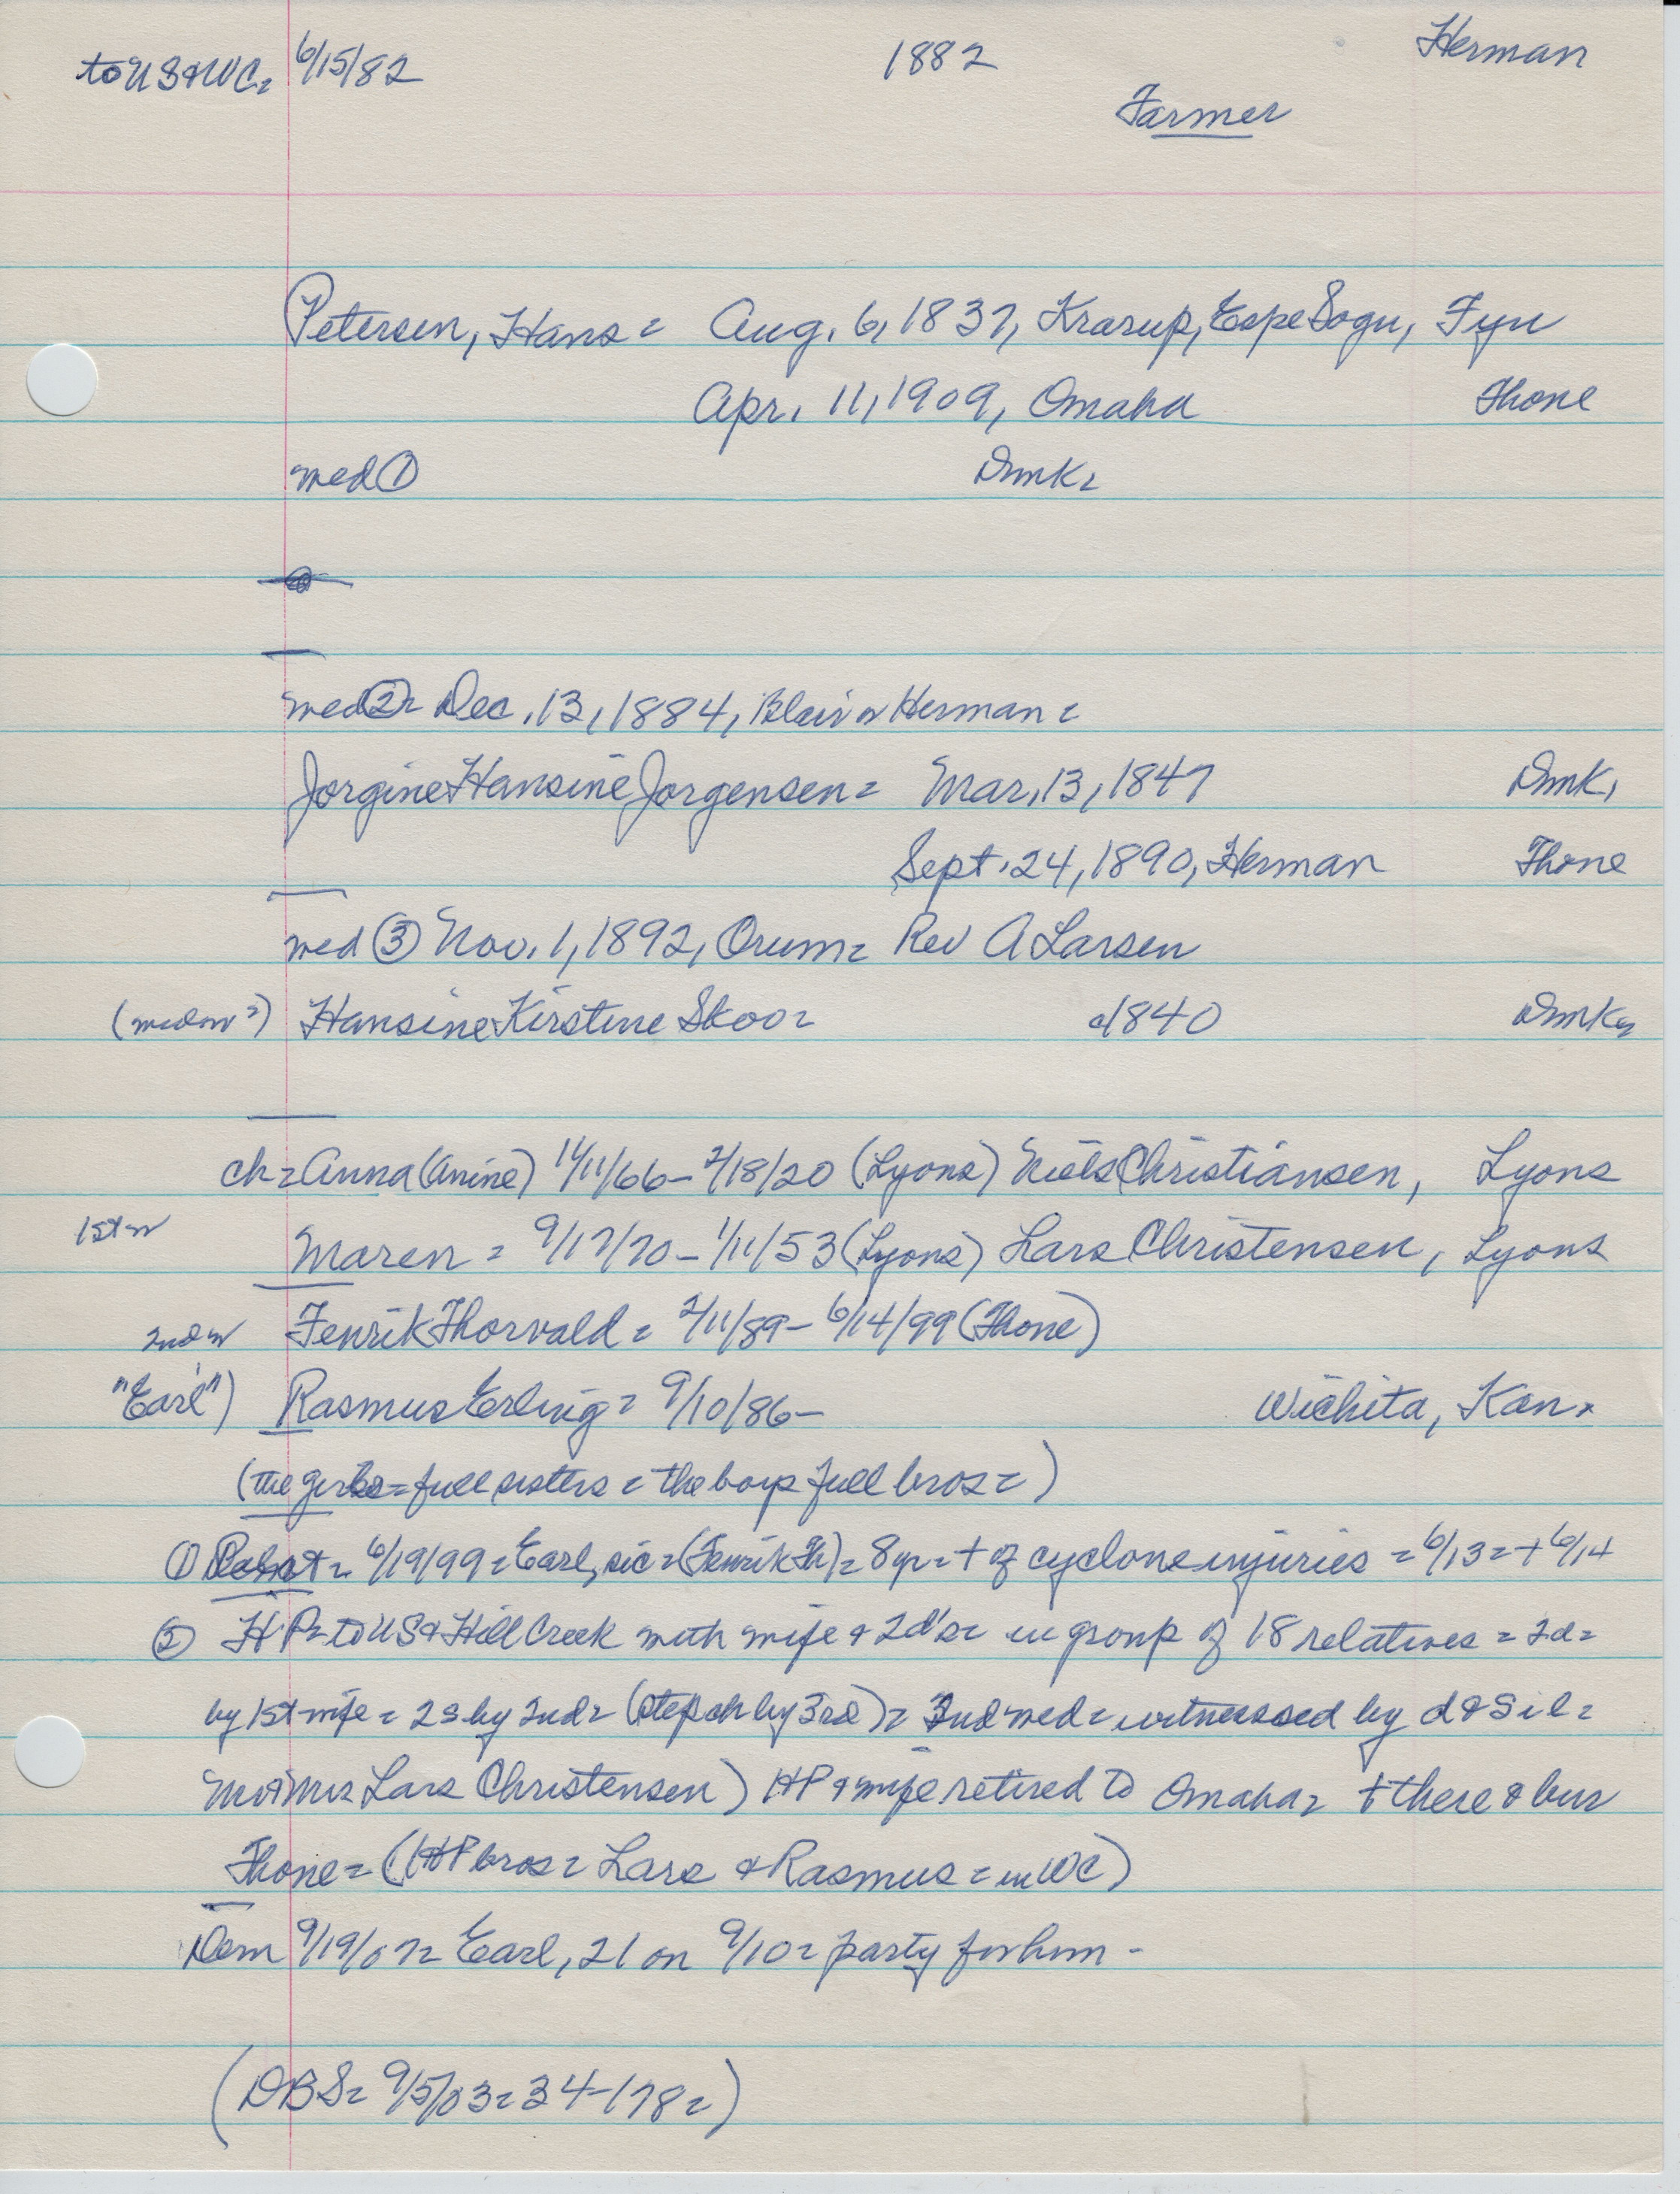 to US & WC = 6/15/82 1882 Herman
Farmer
Petersen, Hans = Aug. 6, 1837, Krarup, Espe Sogn, Fyn
Apr. 11, 1909, Omaha Thone
med ① Dmk =
med ② = Dec. 13, 1884, Blair or Herman =
Jorgine Hansine Jorgensen = Mar. 13, 1847 Dmk,
Sept. 24, 1890, Herman Thone
med ③ Nov. 1, 1892, Orum = Rev A Larsen
Hansine Kirstine Skoo = c1840 Dmk =
ch = Anna (Anine) 11/11/66 - 2/18/20 (Lyons) Niels Christiansen, Lyons
1st w Maren = 9/17/70 - 1/11/53 (Lyons) Lars Christensen, Lyons
2nd w Fenrik Thorvald = 2/11/89 - 6/14/99 (Thone)
"Earl") Rasmus Erling = 9/10/86 - Wichita, Kan.
(the girls = full sisters = the boys full bros =)
① = 6/19/99 = Earl, sic = (Fenrik Th) = 8 yr = + of cyclone injuries = 6/13 = + 6/14
② HP = to US & Hill Creek with wife & 2 d's = in group of 18 relatives = 2d =
by 1st wife = 2s by 2nd = (step ch by 3rd) = 2nd wed = witnessed by d & sil =
Mr & Mrs Lars Christensen) HP & wife retired to Omaha = + there & bur
Thone = (HP bros = Lars & Rasmus = in WC)
Dem 9/19/07 = Earl, 21 on 9/10 = party for him -
(DBS = 9/5/03 = 34-178 =)